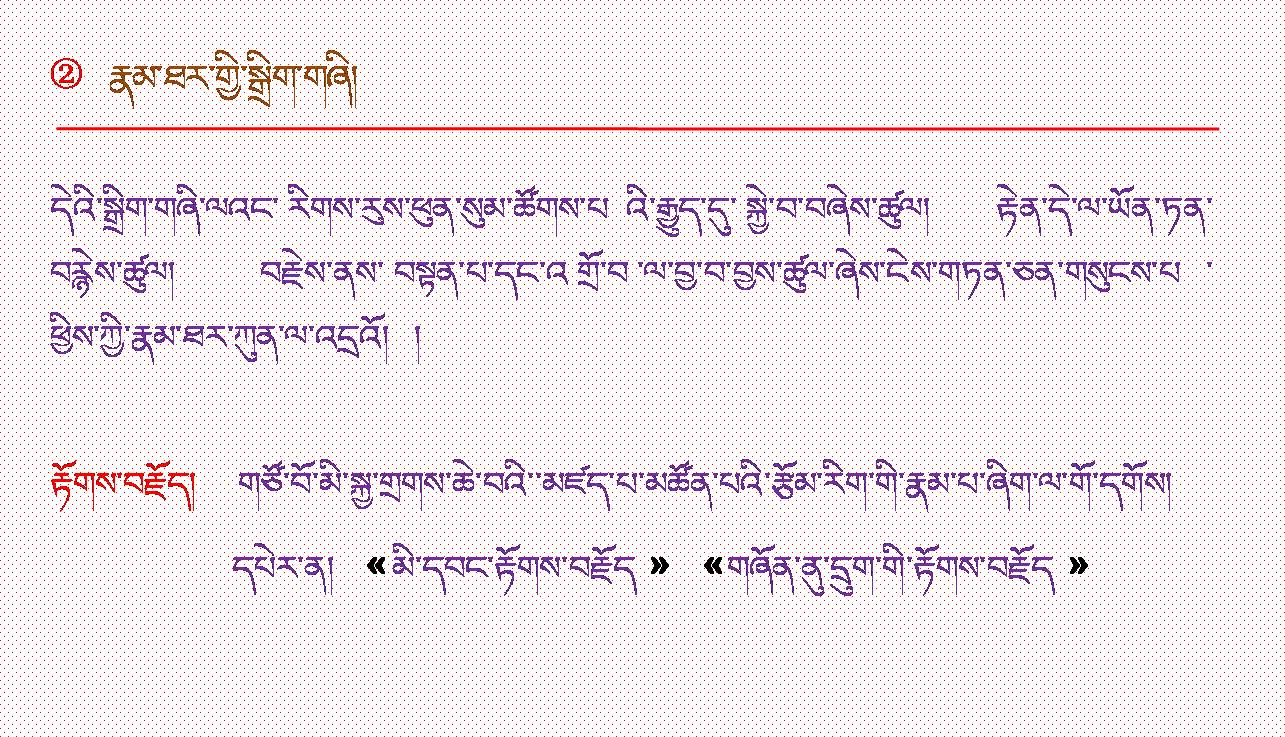 ② རྣམ་ཐར་གྱི་སྒྲིག་གཞི།
དེའི་སྒྲིག་གཞི་ལའང་ རིགས་རུས་ཕུན་སུམ་ཚོགས་པ འི་རྒྱུད་དུ་ སྐྱེ་བ་བཞེས་ཚུལ། རྟེན་དེ་ལ་ཡོན་ཏན་
བརྙེས་ཚུལ། བརྗེས་ནས་ བསྟན་པ་དང་འ གྲོ་བ ་ལ་བྱ་བ་བྱས་ཚུལ་ཞེས་ངེས་གཏན་ཅན་གསུངས་པ ་
ཕྱིས་ཀྱི་རྣམ་ཐར་ཀུན་ལ་འདྲའོ། །
རྟོགས་བརྗོད། གཙོ་བོ་མི་སྐྱ་གྲགས་ཆེ་བའི་་མཛད་པ་མཚོན་པའི་རྩོམ་རིག་གི་རྣམ་པ་ཞིག་ལ་གོ་དགོས།
དཔེར་ན། «མི་དབང་རྟོགས་བརྗོད » «གཞོན་ནུ་དྲུག་གི་རྟོགས་བརྗོད »